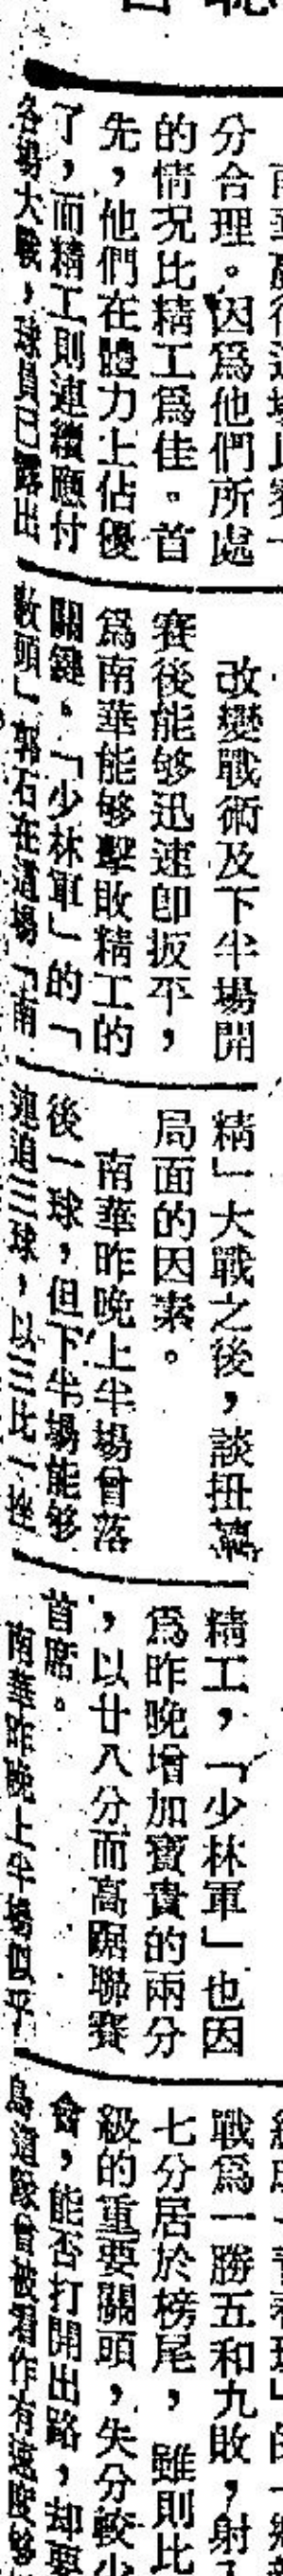 分合理。因爲他們所處
的情况比精工爲佳。首
先，他們在體力上佔優
了，而精工則連續應付
各場大戰，球員已露出
改變戰術及下半場開
賽後能够迅速卽扳平，
爲南華能够擊敗精工的
關鍵。「少林軍」的「
敎頭」郭石在這場「南
精」大戰之後，談扭轉
局面的因素。
南華昨晚上半場曾落
後一球，但下半場能够
連追三球，以三比一挫
精工，「少林軍」也因
爲昨晚增加寶貴的兩分
，以廿八分而高踞聯賽
首席。
南華昨晚上半場似乎
戰爲一勝五和九敗，射
七分居於榜尾，雖則比
級的重要關頭，失分較少
會，能否打開出路，却要
隊曾被看作有速度够